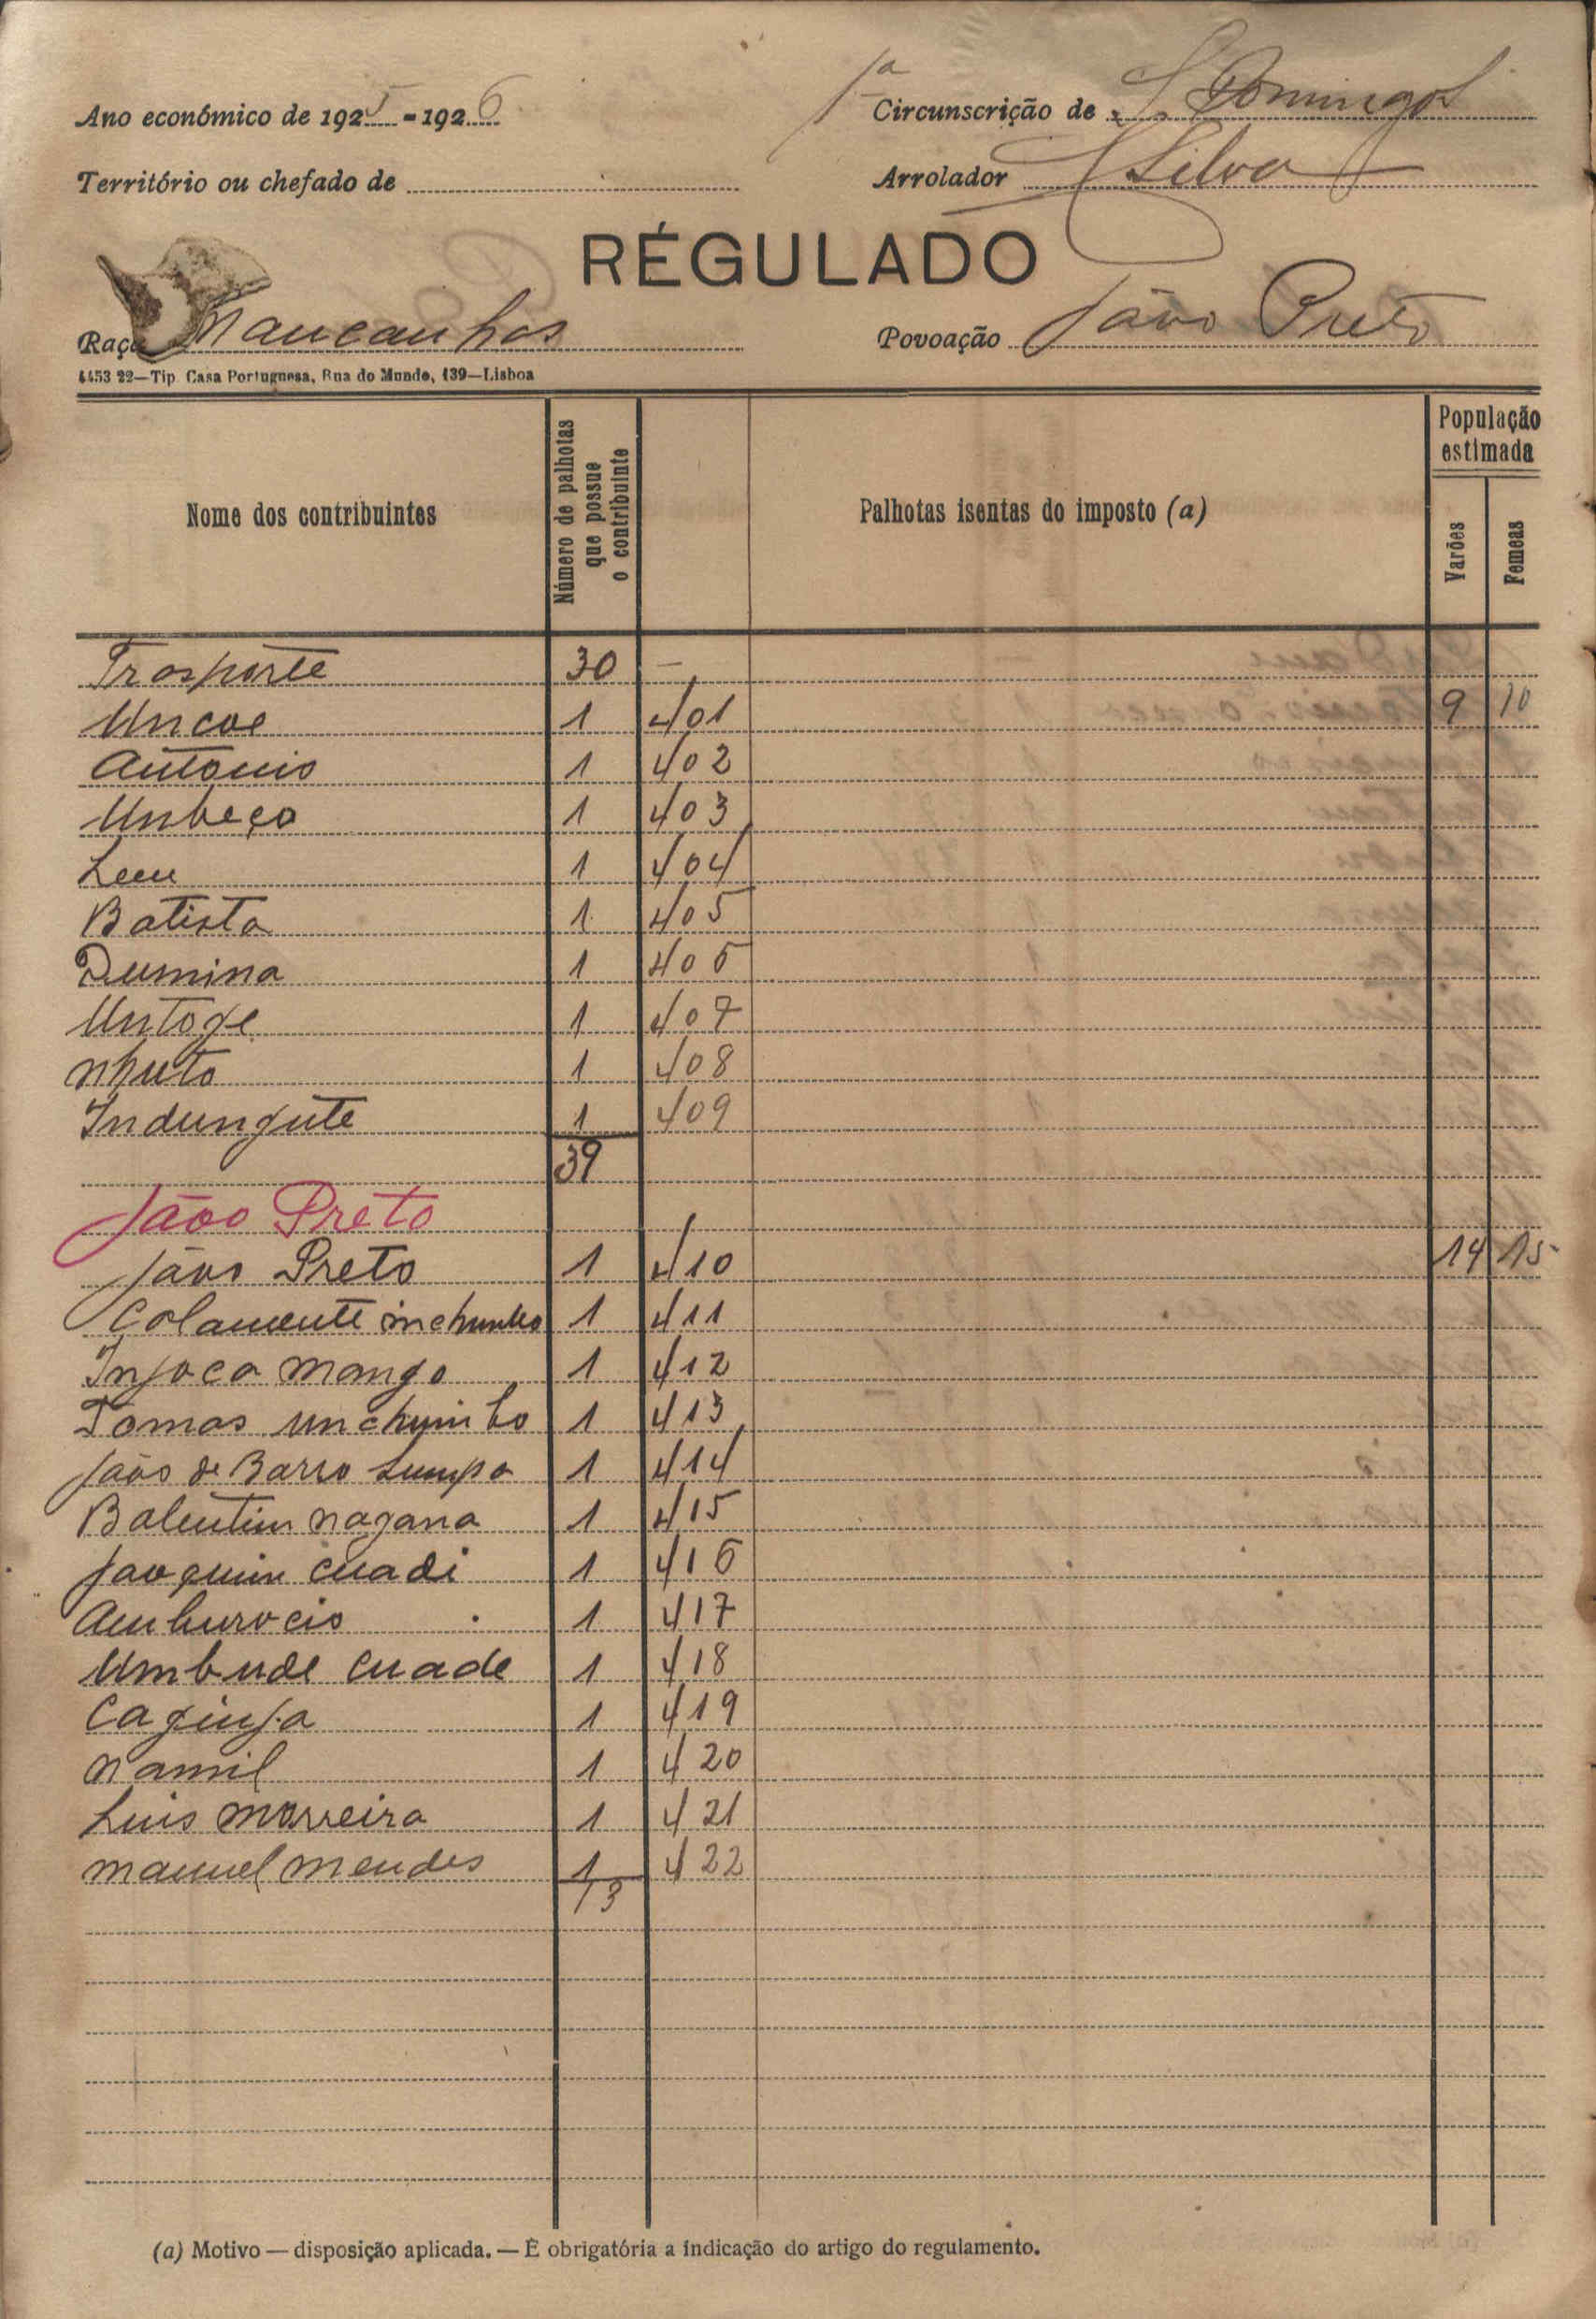 Ano económico de 1925-1926
1ª Circunscrição de S. Domingos
Território ou chefado de
Arrolador Silva
RÉGULADO
Raça Mancanhas
Povoação João Preto
4453 22—Tip. Casa Portuguesa, Rua do Mundo, 139—Lisboa
Nome dos contribuintes
Número de palhotas que possue o contribuinte
Palhotas isentas do imposto (a)
População estimada
Varões
Femeas
Trosporte 30 —
Uncoe 1 401 9 10
Antonio 1 402
Unbeço 1 403
1 404
Batista 1 405
Dumina 1 406
Untoge 1 407
Nhuto 1 408
Indungute 1 409
39
João Preto
João Preto 1 410 14 15
Colamente inchumbo 1 411
Injoca Mango 1 412
Tomas Unchumbo 1 413
João de Barro Lumpo 1 414
Balentim Nagana 1 415
Joaquim Cuadi 1 416
Amburocio 1 417
Umbude Cuade 1 418
Caginga 1 419
Namil 1 420
Luis Morreira 1 421
Manuel Mendes 1 422
13
(a) Motivo — disposição aplicada. — É obrigatória a indicação do artigo do regulamento.